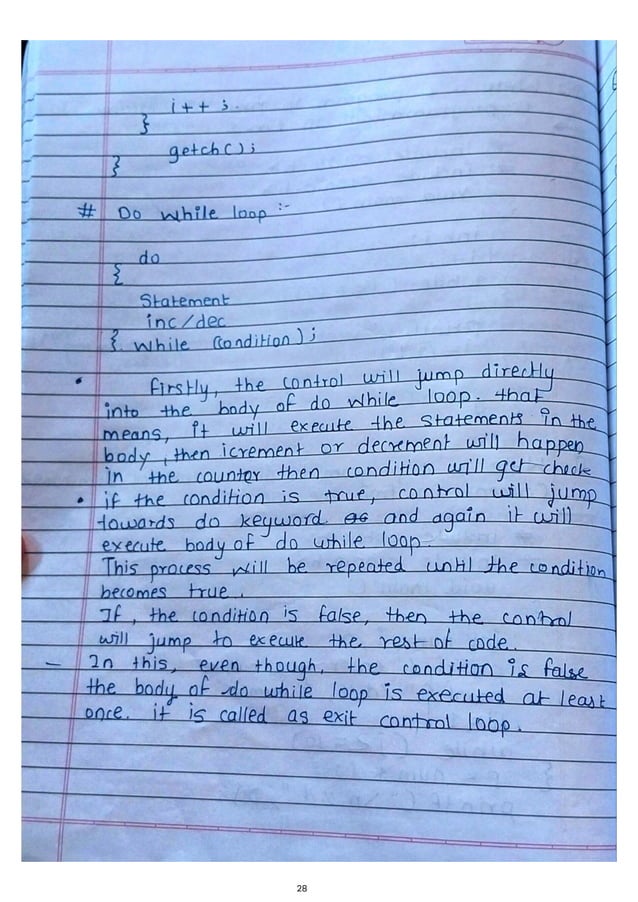 i++;
}
getch();
}
# Do while loop :-
do
{
Statement
inc/dec
}. while (condition);
• firstly, the control will jump directly
into the body of do while loop. that
means, it will execute the statements in the
body, then icrement or decrement will happen
in the counter then condition will get check
• if the condition is true, control will jump
towards do keyword and again it will
execute body of do while loop.
This process will be repeated until the condition
becomes true.
If, the condition is false, then the control
will jump to execute the rest of code.
– In this, even though, the condition is false
the body of do while loop is executed at least
once. it is called as exit control loop.
28